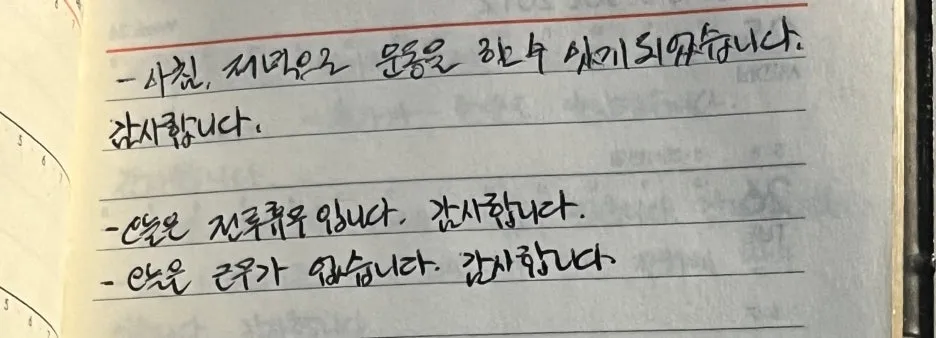 - 아침, 저녁으로 운동을 할 수 있게 되었습니다.
감사합니다.
- 오늘은 전투휴무 입니다. 감사합니다.
- 오늘은 근무가 없습니다. 감사합니다.